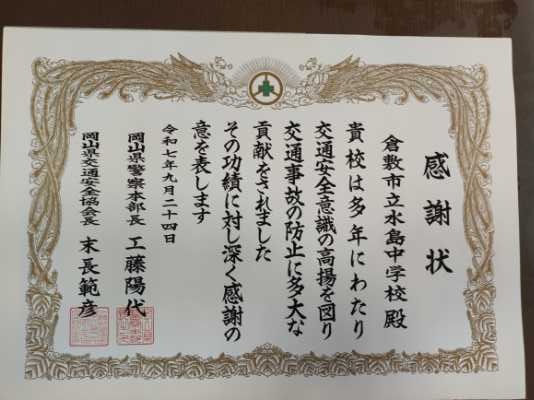 感謝状
倉敷市立水島中学校殿
貴校は多年にわたり
交通安全意識の高揚を図り
交通事故の防止に多大な
貢献をされました
その功績に対し深く感謝の
意を表します
令和七年九月二十四日
岡山県警察本部長 工藤陽代
岡山県交通安全協会長 末長範彦